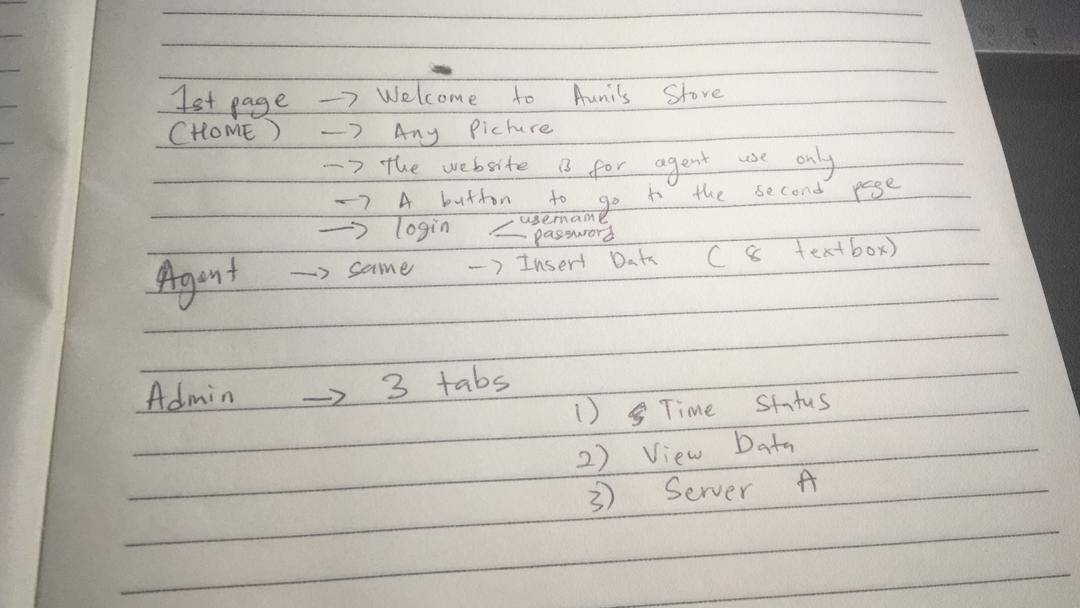 1st page → Welcome to Auni's Store
(HOME) → Any Picture
→ The website is for agent use only
→ A button to go to the second page
→ login < username
password
Agent → same → Insert Data ( 8 textbox)
Admin → 3 tabs
1) Time Status
2) View Data
3) Server A